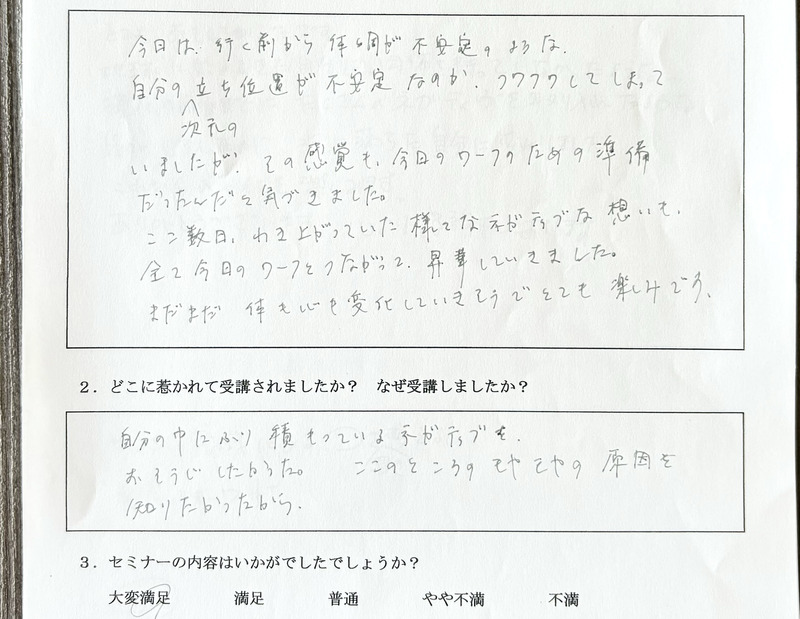 今日は、行く前から体調が不安定のような、
自分の立ち位置が不安定なのか、フワフワしてしまって
次元の
いましたが、その感覚も、今日のワークのための準備
だったんだと気づきました。
ここ数日、わき上がっていた様々なネガティブな想いも、
全て今日のワークとつながって、昇華していきました。
まだまだ 体も心も変化していきそうでとても楽しみです。
2．どこに惹かれて受講されましたか？ なぜ受講しましたか？
自分の中にふり積もっているネガティブを、
おそうじしたかった。 ここのところのモヤモヤの原因を
知りたかったから、
3．セミナーの内容はいかがでしたでしょうか？
大変満足 満足 普通 やや不満 不満